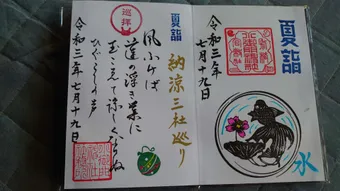 夏詣
令和三年
七月十九日
水
夏詣 納涼三社巡り
巡拝
風ふけば
蓮の浮き葉に
玉こえて涼しくなりぬ
ひぐらしの声
令和三年七月十九日